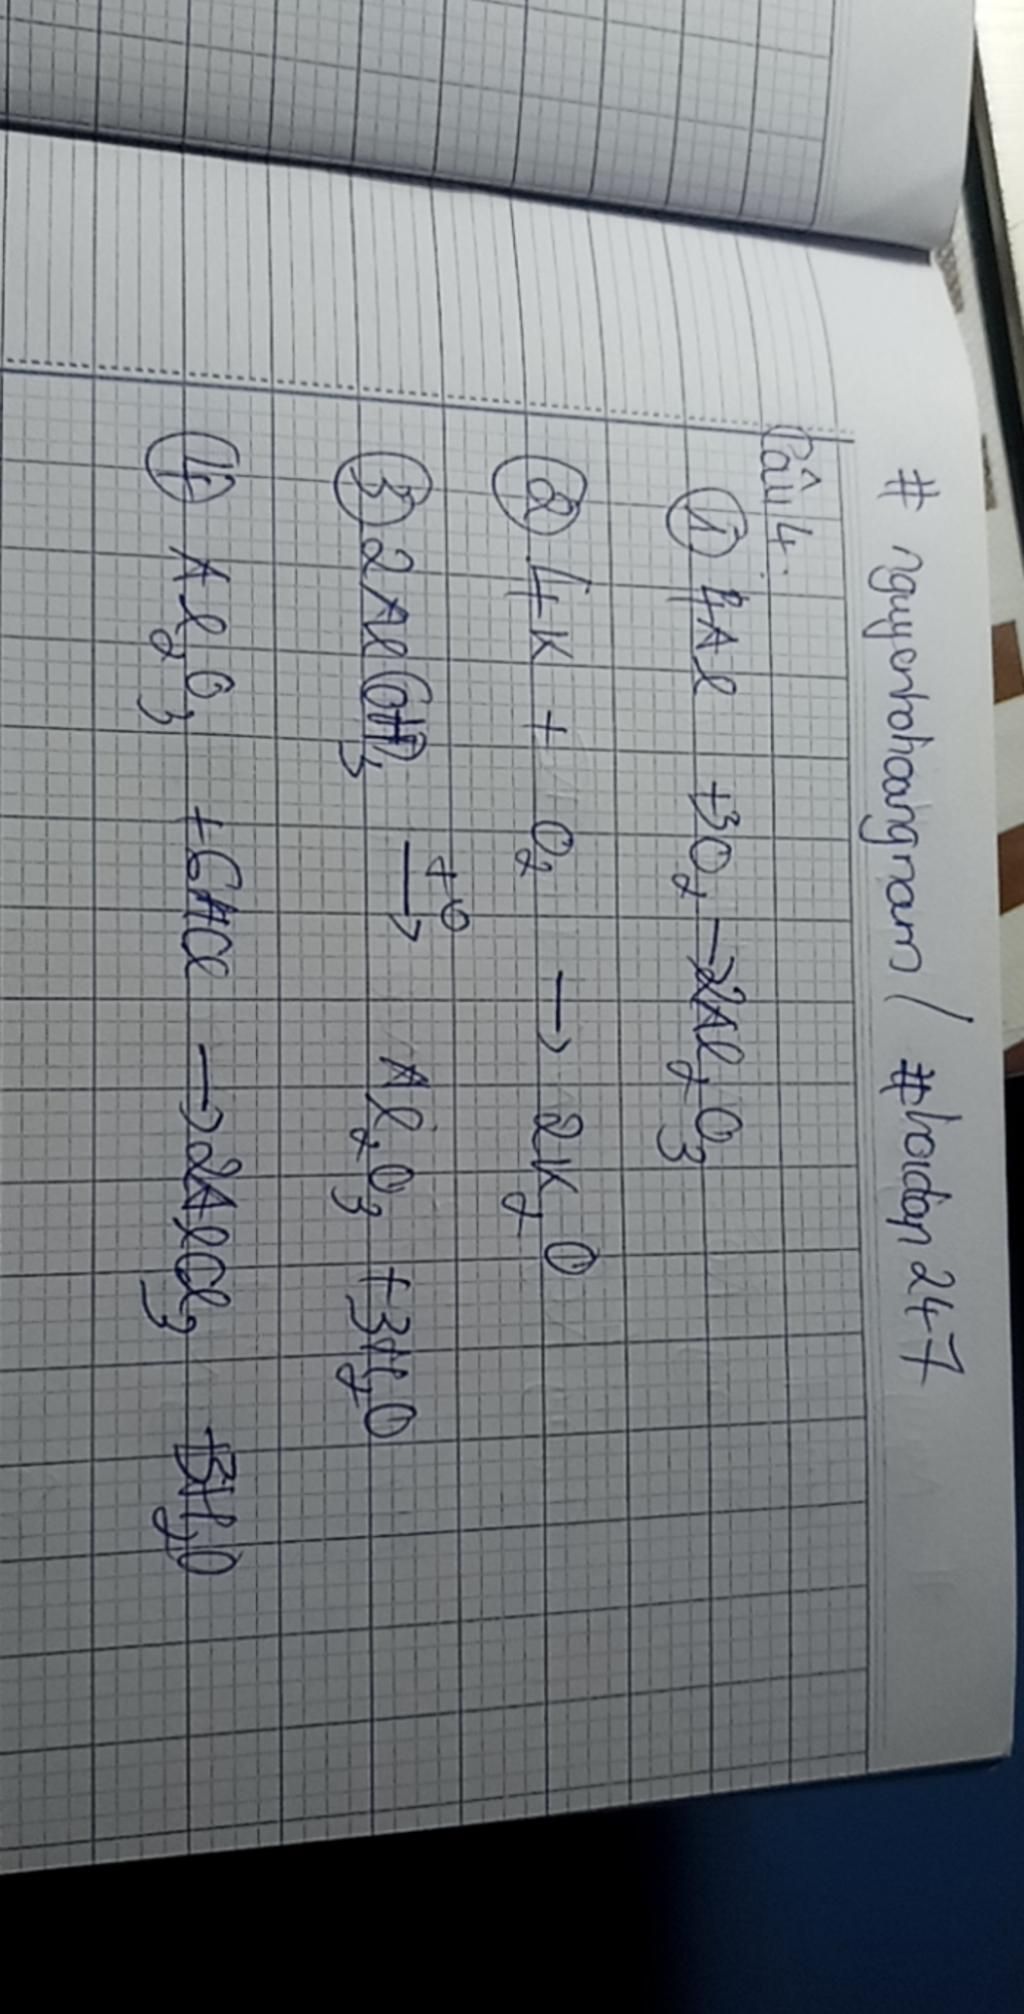 # nguyenhoangnam / #hoidap247
Câu 4.
① 4Al + 3O₂ → 2Al₂O₃
② 4K + O₂ → 2K₂O
③ 2Al(OH)₃ →t⁰ Al₂O₃ + 3H₂O
④ Al₂O₃ + 6HCl → 2AlCl₃ + 3H₂O